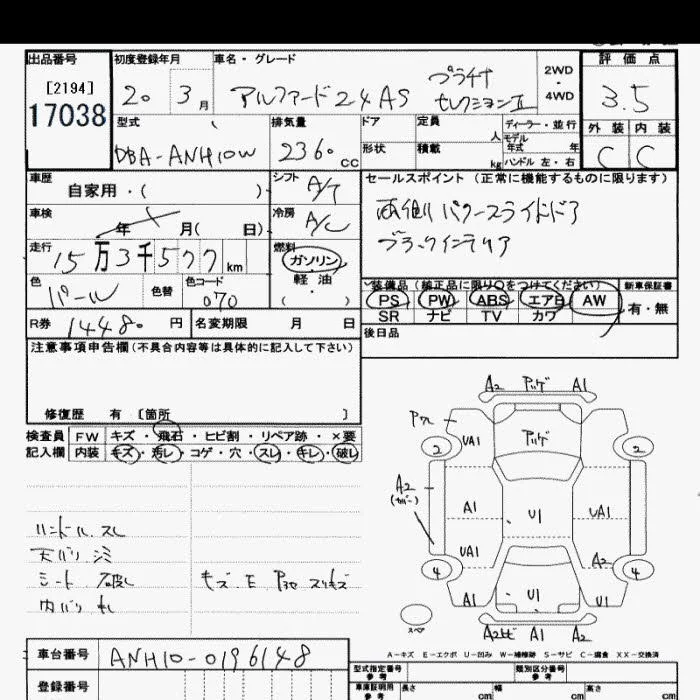 出品番号
[2194]
17038
初度登録年月
20 3月
車名・グレード
アルファード24AS プラチナ
セレクションII
2WD
・
4WD
評価点
3.5
外装 内装
C C
型式
DBA-ANH10W
排気量
2360 cc
ドア
形状
定員 人
積載 kg
ディーラー・並行
モデル
年式 年
ハンドル 左・右
車歴
自家用・( )
シフト
A/T
車検
年 月( 日)
冷房
A/C
走行
15万3千577 km
燃料
ガソリン
軽油
( ・ )
色
パール
色替
色コード
070
R券 14480 円
名変期限 月 日
セールスポイント(正常に機能するものに限ります)
両側パワースライドドア
ブラックインテリア
装備品(純正品に限り○をつけてください)
PS PW ABS エアB AW
SR ナビ TV カワ
新車保証書
有・無
後日品
注意事項申告欄(不具合内容等は具体的に記入して下さい)
修復歴 有 [箇所 ]
検査員
記入欄
FW キズ・飛石・ヒビ割・リペア跡・×要
内装 キズ・汚レ・コゲ・穴・スレ・キレ・破レ
ハンドル スレ
天バリ シミ
シート 破レ
内バリ キレ
キズ E
A2 A1
UA1
2 2
A2
A1 U1 UA1
UA1 A2
4 4
A1 U1 U1
スペア
A1 A2
A-キズ E-エクボ U-凹み W-補修跡 S-サビ C-腐食 XX-交換済
車台番号
ANH10-0196148
登録番号
型式指定番号
参考
類別区分番号
参考
車庫証明用
参考
長さ cm
幅 cm
高さ cm